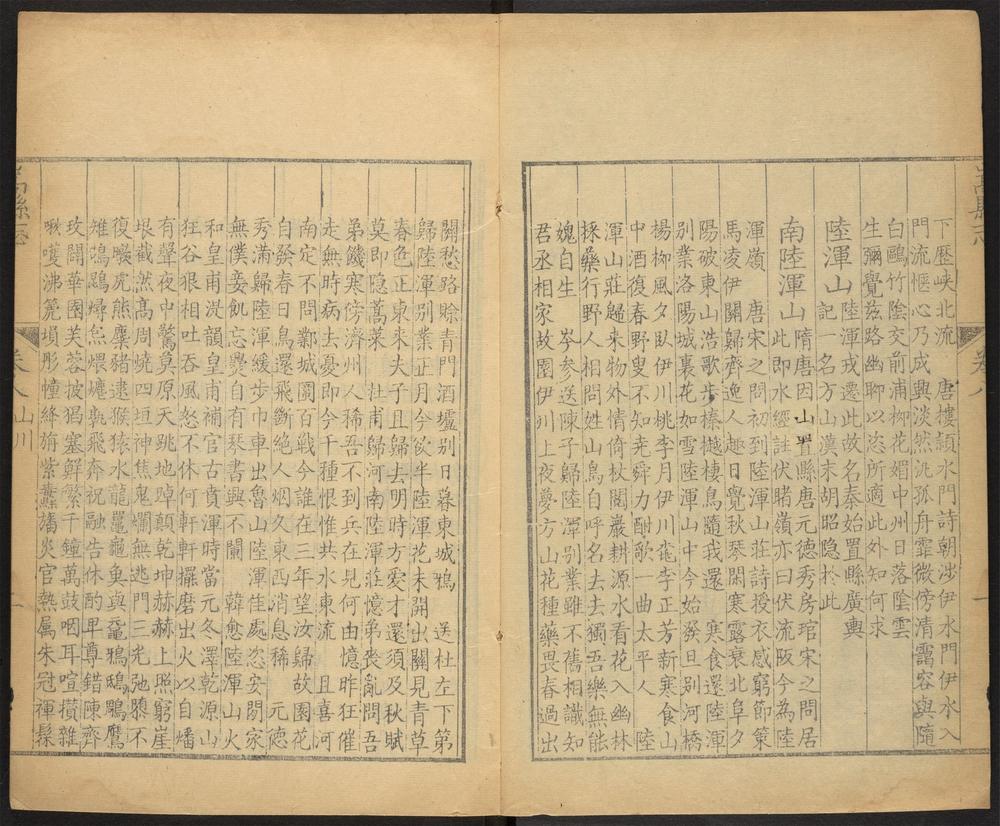 下歷峽北流　唐樓頴水門詩朝涉伊水門伊水入
門流愜心乃成興淡然泛孤舟霏微傍清靄容與隨
白鷗竹陰交前浦柳花媚中州日落陰雲
生彌覺茲路幽聊以恣所適此外知何求
陸渾山陸渾戎遷此故名秦始置縣廣輿
記一名方山漢末胡昭隐於此
南陸渾山隋唐因山置縣唐元德秀房琯宋之問居
此即水經註伏睹嶺亦曰伏流阪今為陸
渾嶺　唐宋之問初到陸渾山莊詩授衣感窮節策
馬凌伊關歸齊逸人趣日覺秋琴閑寒露衰北阜夕
陽破東山浩歌步榛樾棲鳥隨我還　寒食還陸渾
别業洛陽城裏花如雪陸渾山中今始發旦别河橋
楊柳風夕臥伊川桃李月伊川桃李正芳新寒食山
中酒復春野叟不知尭舜力酣歌一曲太平人　陸
渾山莊歸來物外情倚杖閱巖耕源水看花入幽林
採藥行野人相問姓山鳥自呼名去去獨吾樂無能
媿自生　岑参送陳子歸陸渾别業雖不舊相識知
君丞相家故園伊川上夜夢方山花種藥畏春過出
關愁路賖青門酒壚别日暮東城鴉　送杜左下第
歸陸渾别業正月今欲半陸渾花未開出關見青草
春色正東來夫子且歸去明時方愛才還須及秋賦
莫即隐蒿萊　杜甫歸河南陸渾莊憶弟喪亂問吾
弟饑寒傍濟州人稀吾不到兵在見何由憶昨狂催
走無時病去憂即今千種恨惟共水東流　且喜河
南定不問鄴城圍百戰今誰在三年望汝歸故園花
自發春日鳥還飛斷絶人烟久東西消息稀　元德
秀滿歸陸渾緩步巾車出魯山陸渾佳處恣安閒家
無僕妾飢忘爨自有琴書興不闌　韓愈陸渾山火
和皇甫湜韻皇甫補官古賁渾時當元冬澤乾源山
狂谷狠相吐吞風怒不休何軒軒擺磨出火以自燔
有聲夜中驚莫原天跳地踔顛乾坤赫赫上照窮崖
垠截然高周燒四垣神焦鬼爛無逃門三光弛隳不
復暾虎熊麋豬逮猴猿水龍鼉龜魚與黿鴉鴟鵰鷹
雉鵠鵾燖炰煨爊孰飛奔祝融告休酌卑尊錯陳齊
玫闢華園芙蓉披猖塞鮮繁千鐘萬鼓咽耳喧攢雜
啾嚄沸篪塤彤幢絳旃紫纛旛炎官熱属朱冠褌髹
嵩縣志
卷八
山川
一
嵩縣志
卷八
一